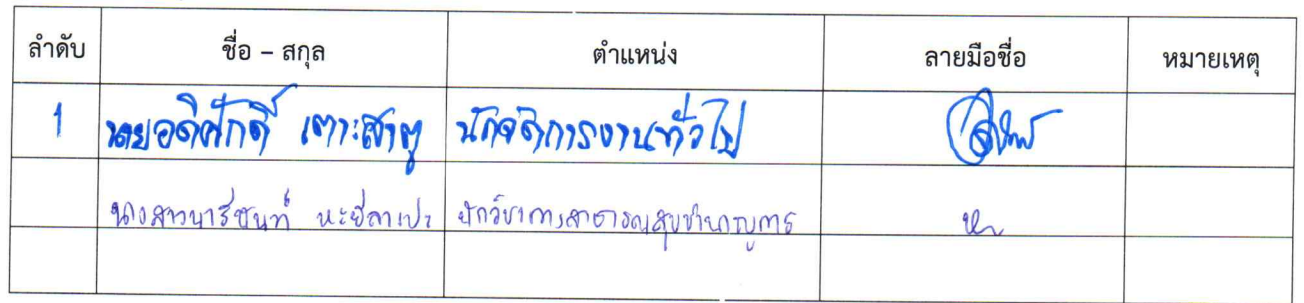 ลำดับ ชื่อ – สกุล ตำแหน่ง ลายมือชื่อ หมายเหตุ
1 นายอดิศักดิ์ เตาะสาตู นักจัดการงานทั่วไป
นางสาวนารีซันท์ หะยีลาเปะ นักวิชาการสาธารณสุขชำนาญการ